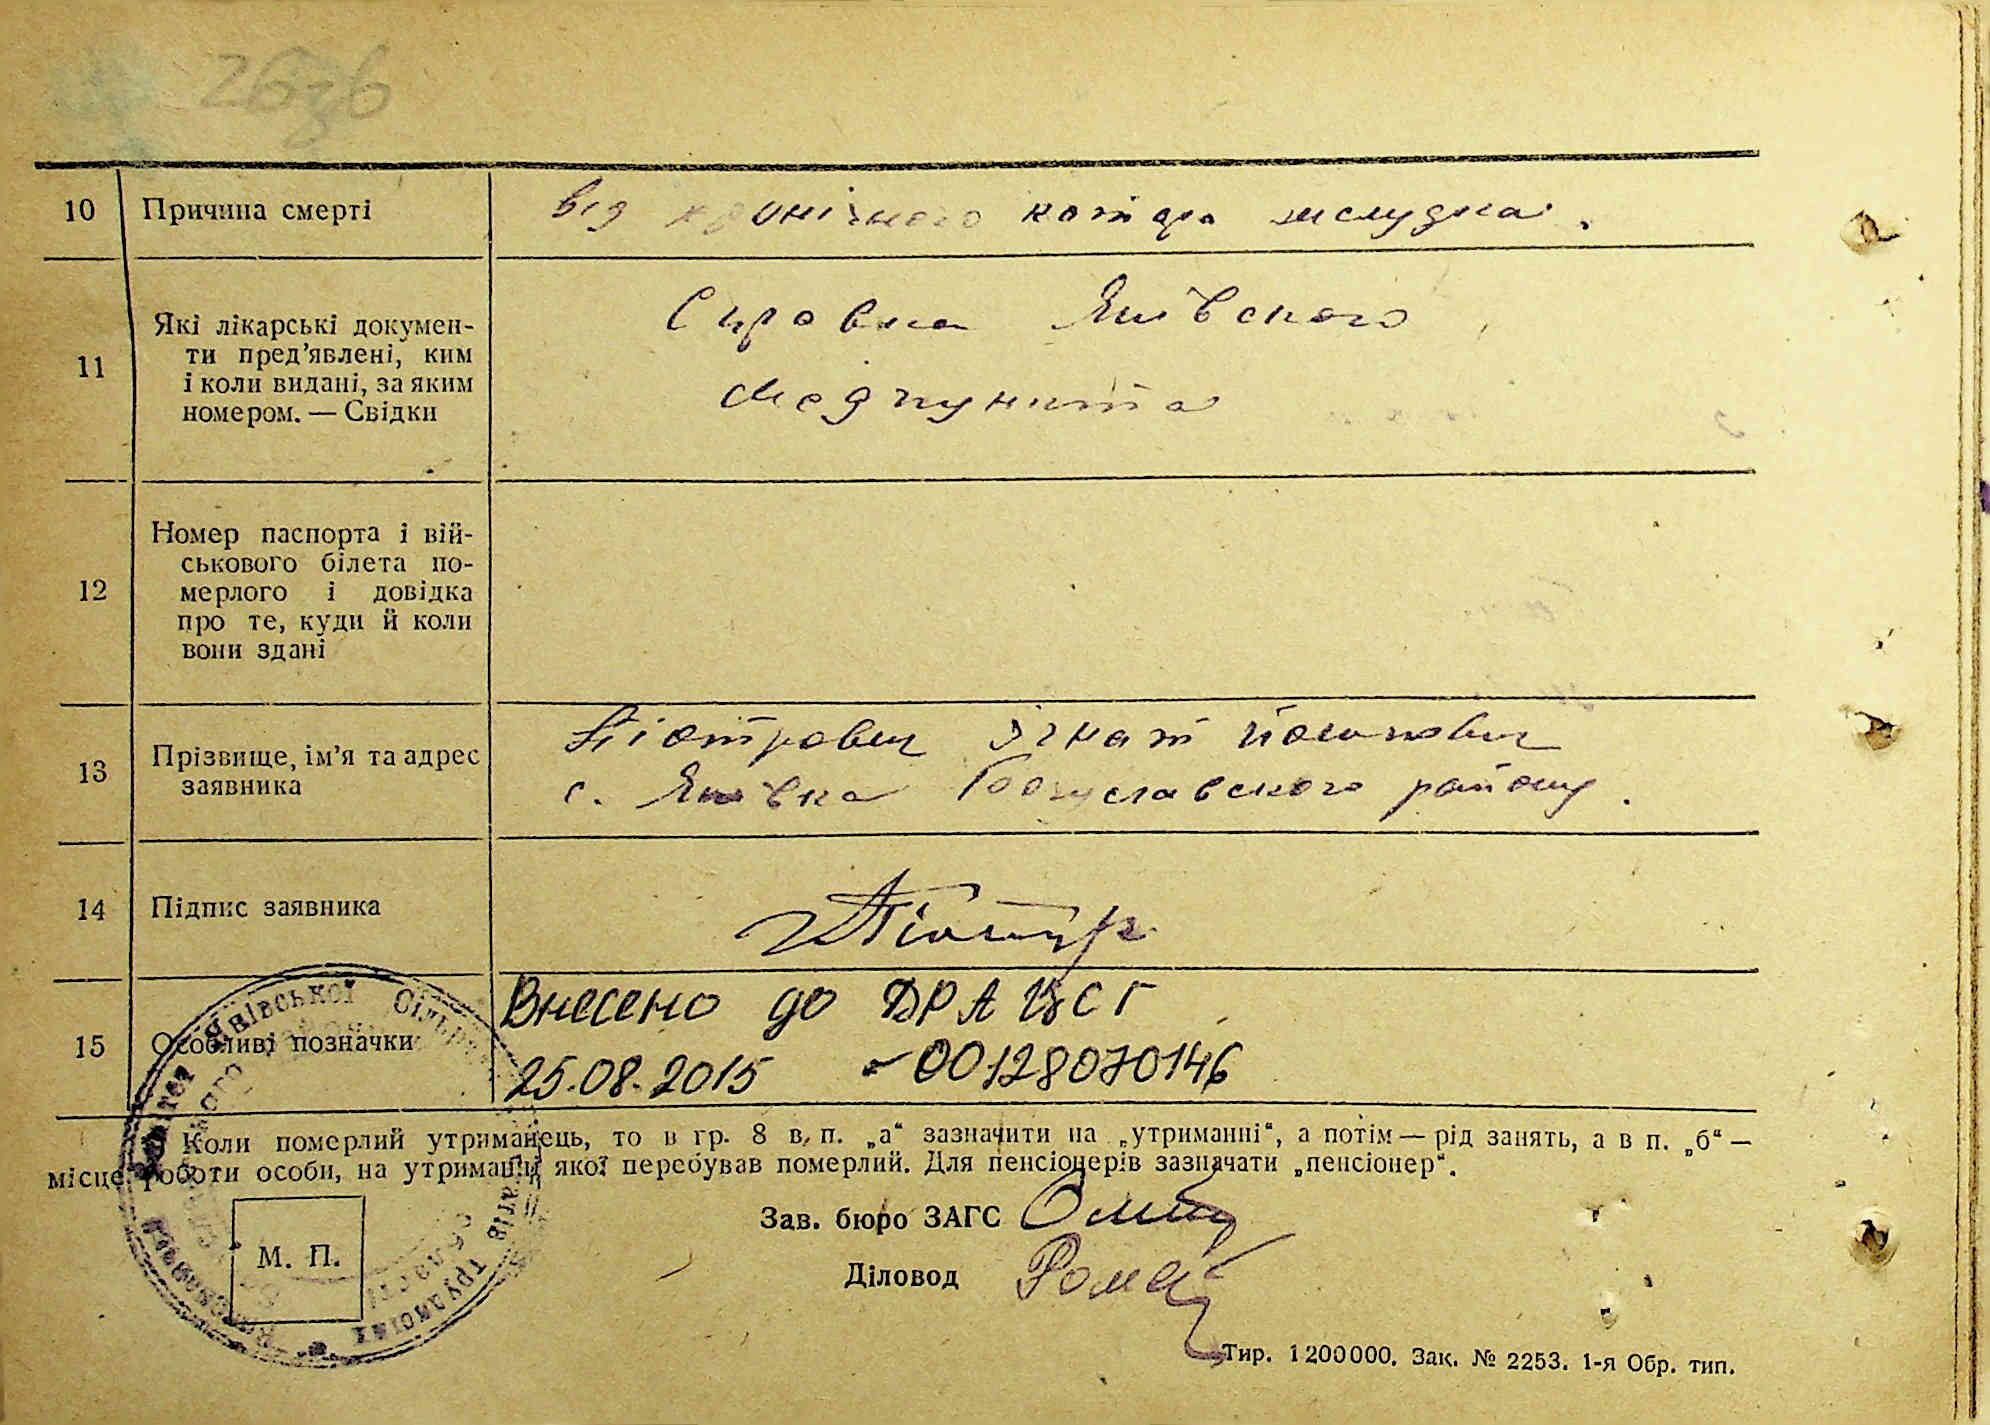 10 Причина смерті від хронічного катара желудка.
11 Які лікарські докумен-
ти пред’явлені, ким
і коли видані, за яким
номером. — Свідки
Справка Янівского
Медпункта
12 Номер паспорта і вій-
ськового білета по-
мерлого і довідка
про те, куди й коли
вони здані
13 Прізвище, ім’я та адрес
заявника
Піотрович Ігнат Йосипович
с. Янівка Богуславского району.
14 Підпис заявника
15 Особливі позначки
Внесено до ДРАЦСГ
25.08.2015 00128070146
Коли померлий утриманець, то в гр. 8 в. п. „а“ зазначити на „утриманні“, а потім — рід занять, а в п. „б“ —
місце роботи особи, на утриманні якої перебував померлий. Для пенсіонерів зазначати „пенсіонер“.
Янівської Сільської
трудящих
області
М. П.
Зав. бюро ЗАГС
Діловод
Тир. 1200000. Зак. № 2253. 1-я Обр. тип.